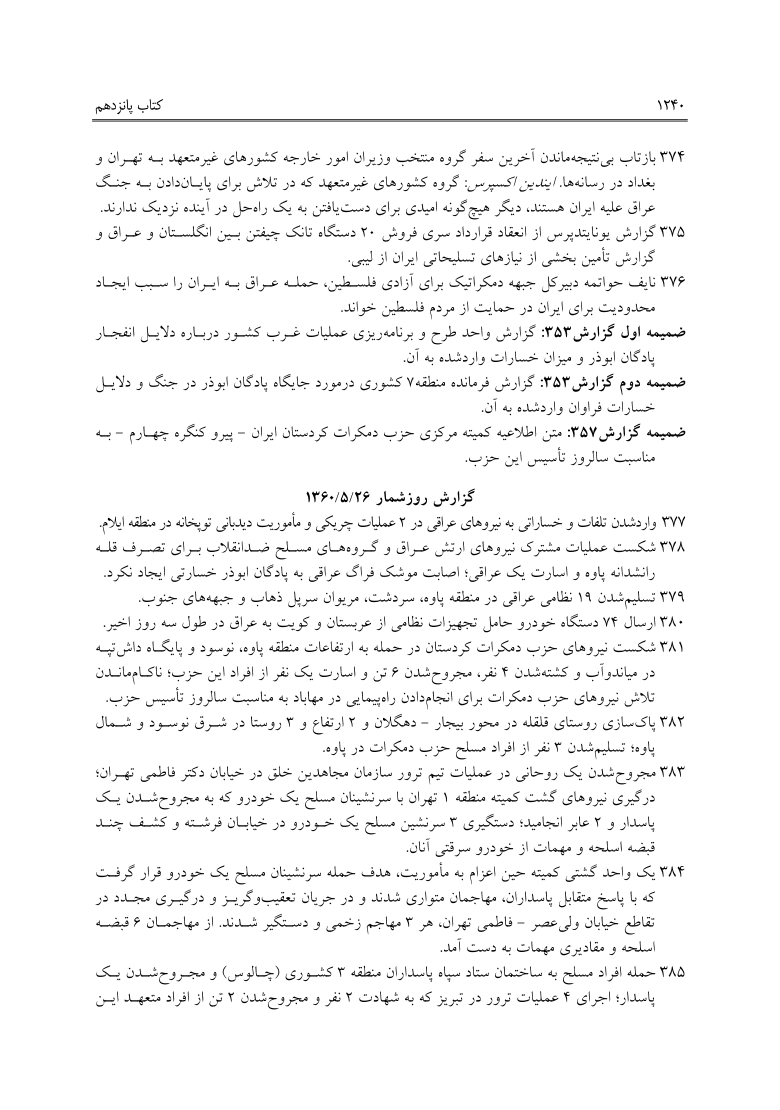 ۱۲۴۰
کتاب پانزدهم
۳۷۴ بازتاب بی‌نتیجه‌ماندن آخرین سفر گروه منتخب وزیران امور خارجه کشورهای غیرمتعهد به تهران و
بغداد در رسانه‌ها. ایندین اکسپرس: گروه کشورهای غیرمتعهد که در تلاش برای پایان‌دادن به جنگ
عراق علیه ایران هستند، دیگر هیچ‌گونه امیدی برای دست‌یافتن به یک راه‌حل در آینده نزدیک ندارند.
۳۷۵ گزارش یونایتدپرس از انعقاد قرارداد سری فروش ۲۰ دستگاه تانک چیفتن بین انگلستان و عراق و
گزارش تأمین بخشی از نیازهای تسلیحاتی ایران از لیبی.
۳۷۶ نایف حواتمه دبیرکل جبهه دمکراتیک برای آزادی فلسطین، حمله عراق به ایران را سبب ایجاد
محدودیت برای ایران در حمایت از مردم فلسطین خواند.
ضمیمه اول گزارش۳۵۳: گزارش واحد طرح و برنامه‌ریزی عملیات غرب کشور درباره دلایل انفجار
پادگان ابوذر و میزان خسارات واردشده به آن.
ضمیمه دوم گزارش۳۵۳: گزارش فرمانده منطقه۷ کشوری درمورد جایگاه پادگان ابوذر در جنگ و دلایل
خسارات فراوان واردشده به آن.
ضمیمه گزارش۳۵۷: متن اطلاعیه کمیته مرکزی حزب دمکرات کردستان ایران - پیرو کنگره چهارم - به
مناسبت سالروز تأسیس این حزب.
گزارش روزشمار ۱۳۶۰/۵/۲۶
۳۷۷ واردشدن تلفات و خساراتی به نیروهای عراقی در ۲ عملیات چریکی و مأموریت دیدبانی توپخانه در منطقه ایلام.
۳۷۸ شکست عملیات مشترک نیروهای ارتش عراق و گروه‌های مسلح ضدانقلاب برای تصرف قله
رانشدانه پاوه و اسارت یک عراقی؛ اصابت موشک فراگ عراقی به پادگان ابوذر خسارتی ایجاد نکرد.
۳۷۹ تسلیم‌شدن ۱۹ نظامی عراقی در منطقه پاوه، سردشت، مریوان سرپل ذهاب و جبهه‌های جنوب.
۳۸۰ ارسال ۷۴ دستگاه خودرو حامل تجهیزات نظامی از عربستان و کویت به عراق در طول سه روز اخیر.
۳۸۱ شکست نیروهای حزب دمکرات کردستان در حمله به ارتفاعات منطقه پاوه، نوسود و پایگاه داش‌تپه
در میاندوآب و کشته‌شدن ۴ نفر، مجروح‌شدن ۶ تن و اسارت یک نفر از افراد این حزب؛ ناکام‌ماندن
تلاش نیروهای حزب دمکرات برای انجام‌دادن راه‌پیمایی در مهاباد به مناسبت سالروز تأسیس حزب.
۳۸۲ پاک‌سازی روستای قلقله در محور بیجار - دهگلان و ۲ ارتفاع و ۳ روستا در شرق نوسود و شمال
پاوه؛ تسلیم‌شدن ۳ نفر از افراد مسلح حزب دمکرات در پاوه.
۳۸۳ مجروح‌شدن یک روحانی در عملیات تیم ترور سازمان مجاهدین خلق در خیابان دکتر فاطمی تهران؛
درگیری نیروهای گشت کمیته منطقه ۱ تهران با سرنشینان مسلح یک خودرو که به مجروح‌شدن یک
پاسدار و ۲ عابر انجامید؛ دستگیری ۳ سرنشین مسلح یک خودرو در خیابان فرشته و کشف چند
قبضه اسلحه و مهمات از خودرو سرقتی آنان.
۳۸۴ یک واحد گشتی کمیته حین اعزام به مأموریت، هدف حمله سرنشینان مسلح یک خودرو قرار گرفت
که با پاسخ متقابل پاسداران، مهاجمان متواری شدند و در جریان تعقیب‌وگریز و درگیری مجدد در
تقاطع خیابان ولی‌عصر - فاطمی تهران، هر ۳ مهاجم زخمی و دستگیر شدند. از مهاجمان ۶ قبضه
اسلحه و مقادیری مهمات به دست آمد.
۳۸۵ حمله افراد مسلح به ساختمان ستاد سپاه پاسداران منطقه ۳ کشوری (چالوس) و مجروح‌شدن یک
پاسدار؛ اجرای ۴ عملیات ترور در تبریز که به شهادت ۲ نفر و مجروح‌شدن ۲ تن از افراد متعهد این